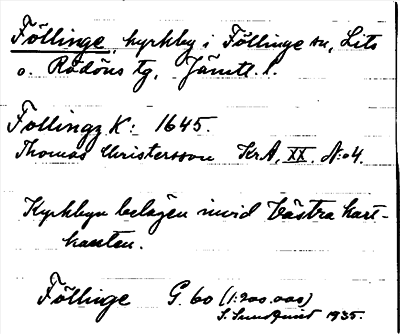 Föllinge, kyrkby i Föllinge sn, Lits
o. Rödöns tg, Jämtl. l.
Follingz K: 1645.
Thomas Christersson Kr.A, XX. N:o4.
Kyrkbyn belägen invid västra kart-
kanten.
Föllinge G. 60 (1:200.000)
S. Sundquist 1935.